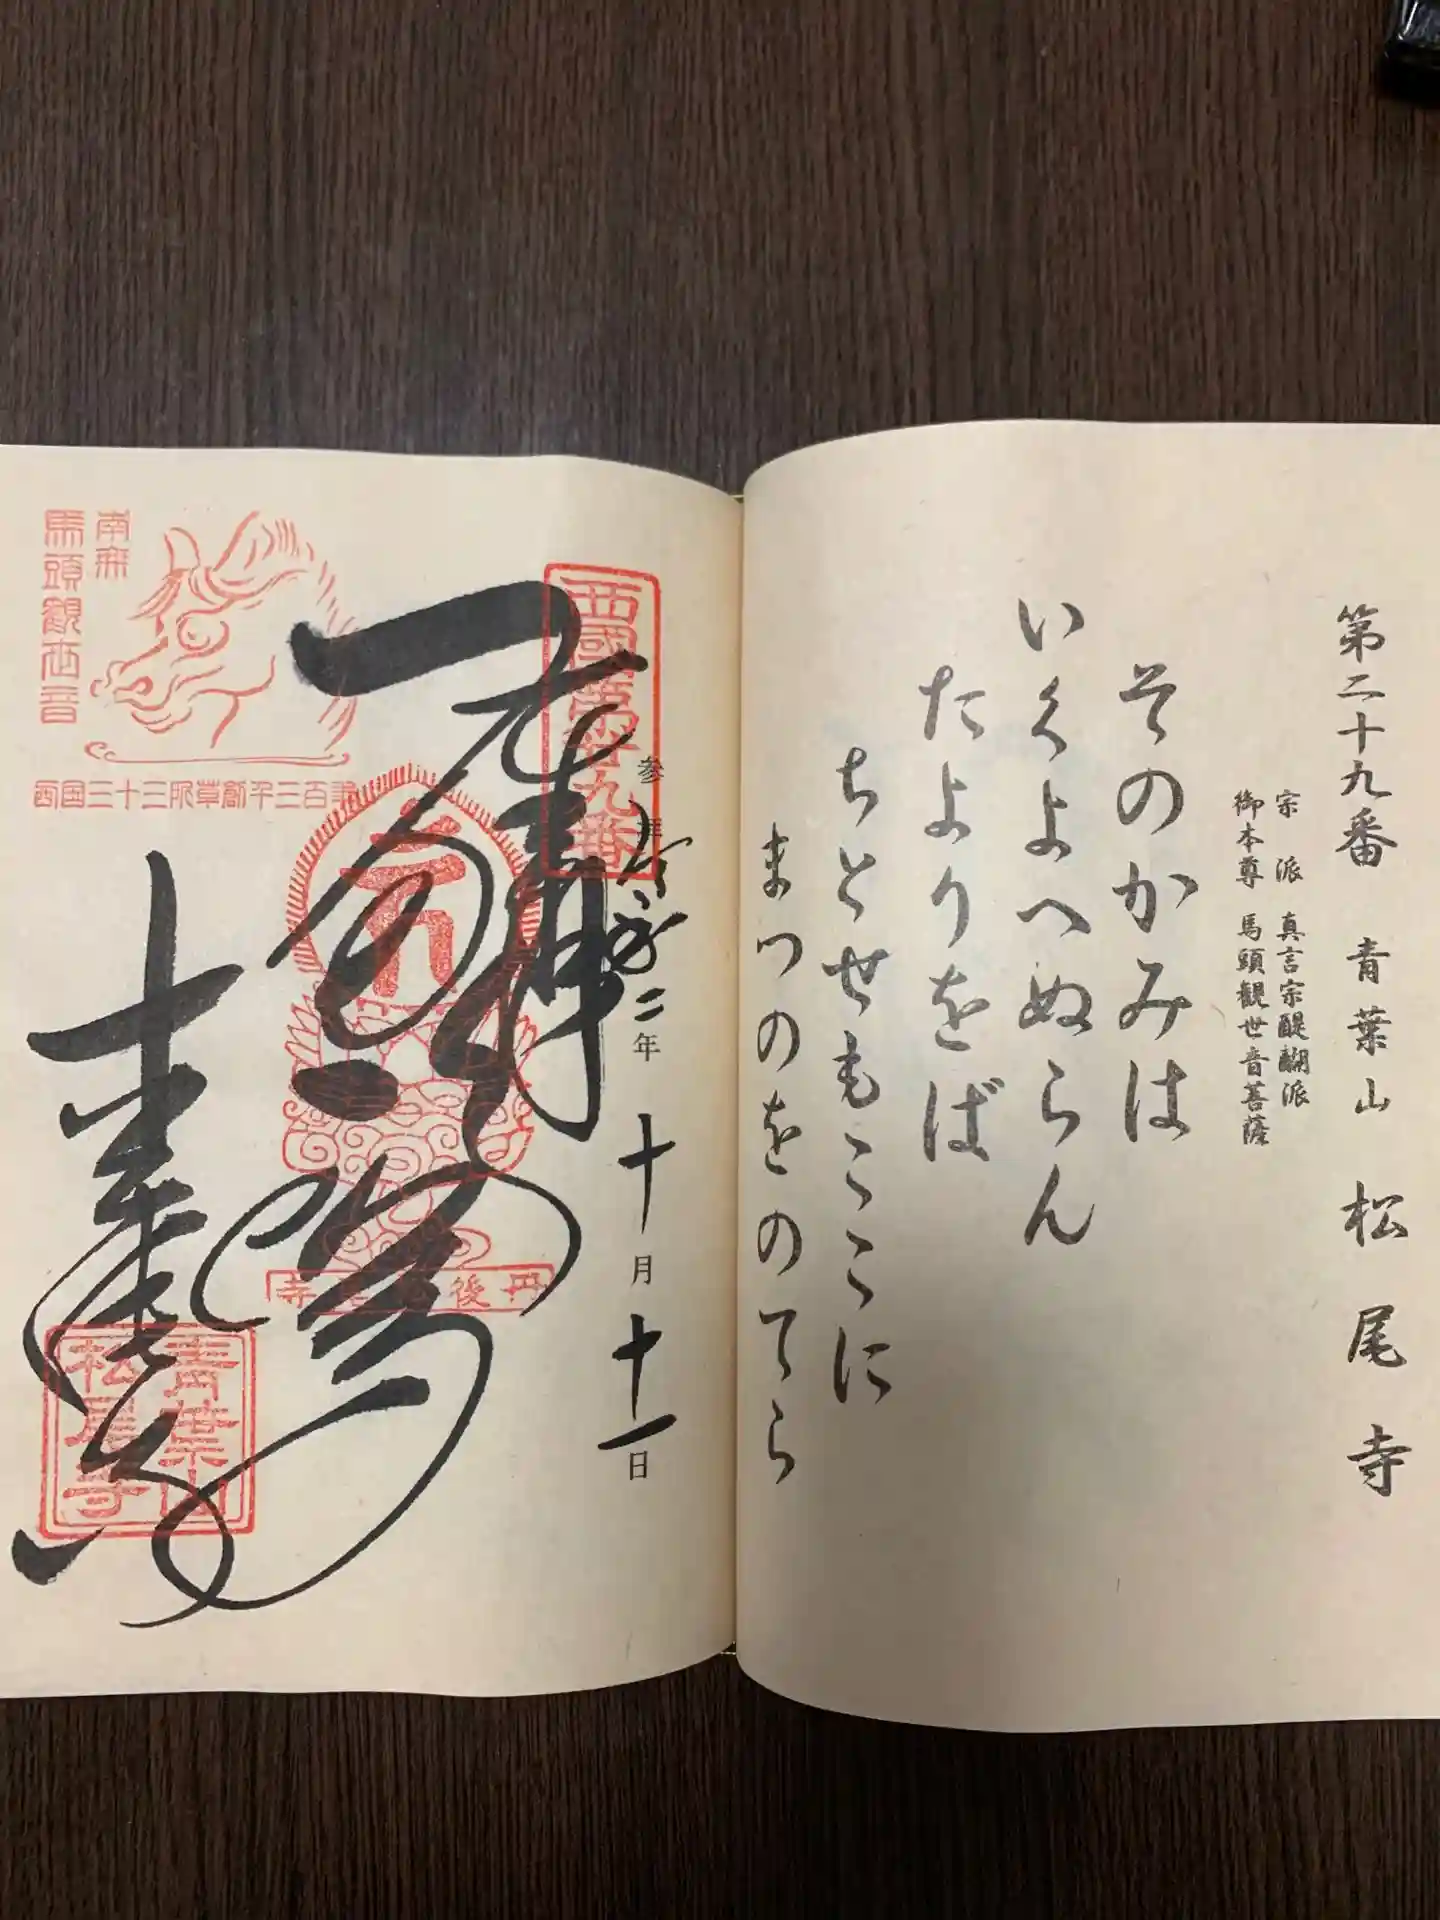 第二十九番 青葉山 松尾寺
宗派 真言宗醍醐派
御本尊 馬頭観世音菩薩
そのかみは
いくよへぬらん
たよりをば
ちとせもここに
まつのをのてら
西國第廿九番
参拝 令和二年十月十一日
南無
馬頭観世音
西国三十三所草創千三百年
丹後松尾寺
青葉山
松尾寺